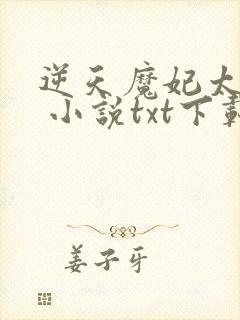 逆天魔妃太
小説txt下載
姜子牙